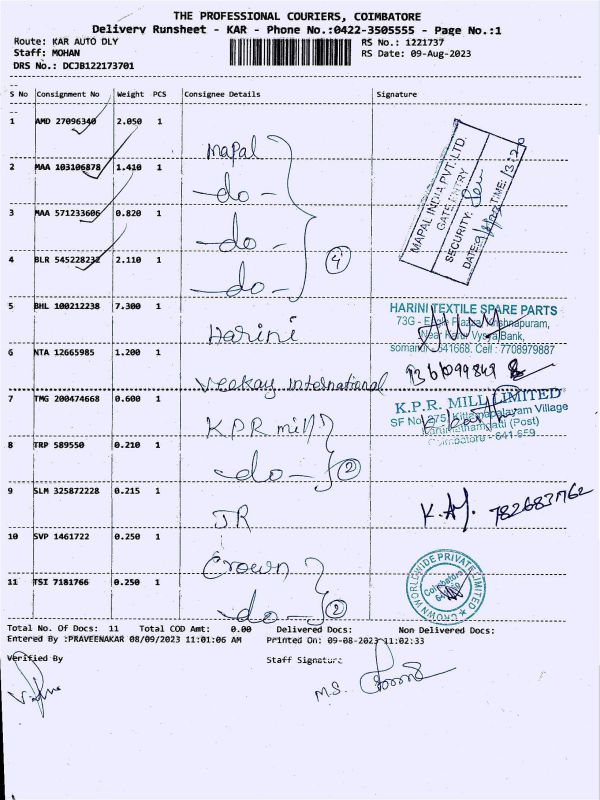 THE PROFESSIONAL COURIERS, COIMBATORE
Delivery Runsheet - KAR - Phone No.:0422-3505555 - Page No.:1
Route: KAR AUTO DLY RS No.: 1221737
Staff: MOHAN RS Date: 09-Aug-2023
DRS No.: DCJB122173701
S No Consignment No Weight PCS Consignee Details Signature
1 AMD 27096340 2.050 1 Mapal
2 MAA 103106878 1.410 1 -do-
3 MAA 571233606 0.820 1 -do-
4 BLR 545228232 2.110 1 -do- 4
MAPAL INDIA PVT. LTD.
GATE ENTRY
SECURITY:
DATE: TIME: 13:20
5 BHL 100212238 7.300 1 Harini
HARINI TEXTILE SPARE PARTS
73G - Plaza, Krishnapuram,
Near Karur Vysya Bank,
641668. Cell: 7708979887
6 NTA 12665985 1.200 1 Veekay International
7 TMG 200474668 0.600 1 K.P.R mill
K.P.R. MILL LIMITED
SF No. 275, Kittampalayam Village
Karumathampatti (Post)
Coimbatore - 641 659
8 TRP 589550 0.210 1 -do- 2
9 SLM 325872228 0.215 1 JR
10 SVP 1461722 0.250 1 Crown
11 TSI 7181766 0.250 1 -do- 2
CROWN WORLDWIDE PRIVATE LIMITED
Coimbatore
Total No. Of Docs: 11 Total COD Amt: 0.00 Delivered Docs: Non Delivered Docs:
Entered By :PRAVEENAKAR 08/09/2023 11:01:06 AM Printed On: 09-08-2023 11:02:33
Verified By Staff Signature
M.S.